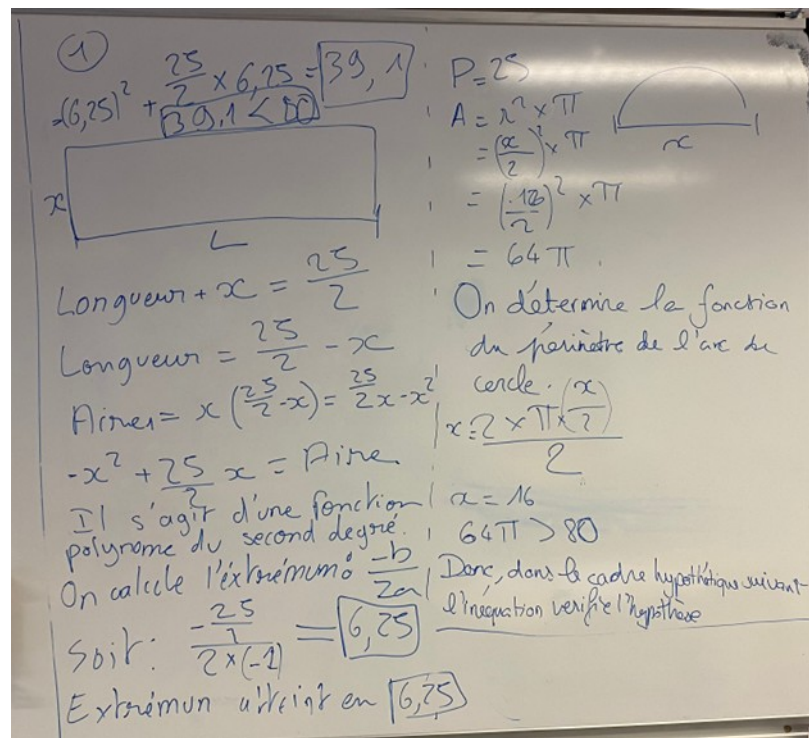 1
-(6,25)² + 25/2 × 6,25 = 39,1
39,1 < 80
x
L
Longueur + x = 25/2
Longueur = 25/2 - x
Aire = x (25/2 - x) = 25/2 x - x²
-x² + 25/2 x = Aire
Il s'agit d'une fonction
polynome du second degré.
On calcule l'éxtrémum : -b/2a
Soit : -25/1 / 2×(-1) = 6,25
Extrémun atteint en 6,25
P = 25
A = r² × π
x
= (x/2)² × π
= (16/2)² × π
= 64 π .
On détermine la fonction
du périnètre de l'arc de
cercle.
x = 2 × π × (x/2) / 2
x = 16
64π > 80
Donc, dans le cadre hypothétique suivant
l'inéquation verifie l'hypothese